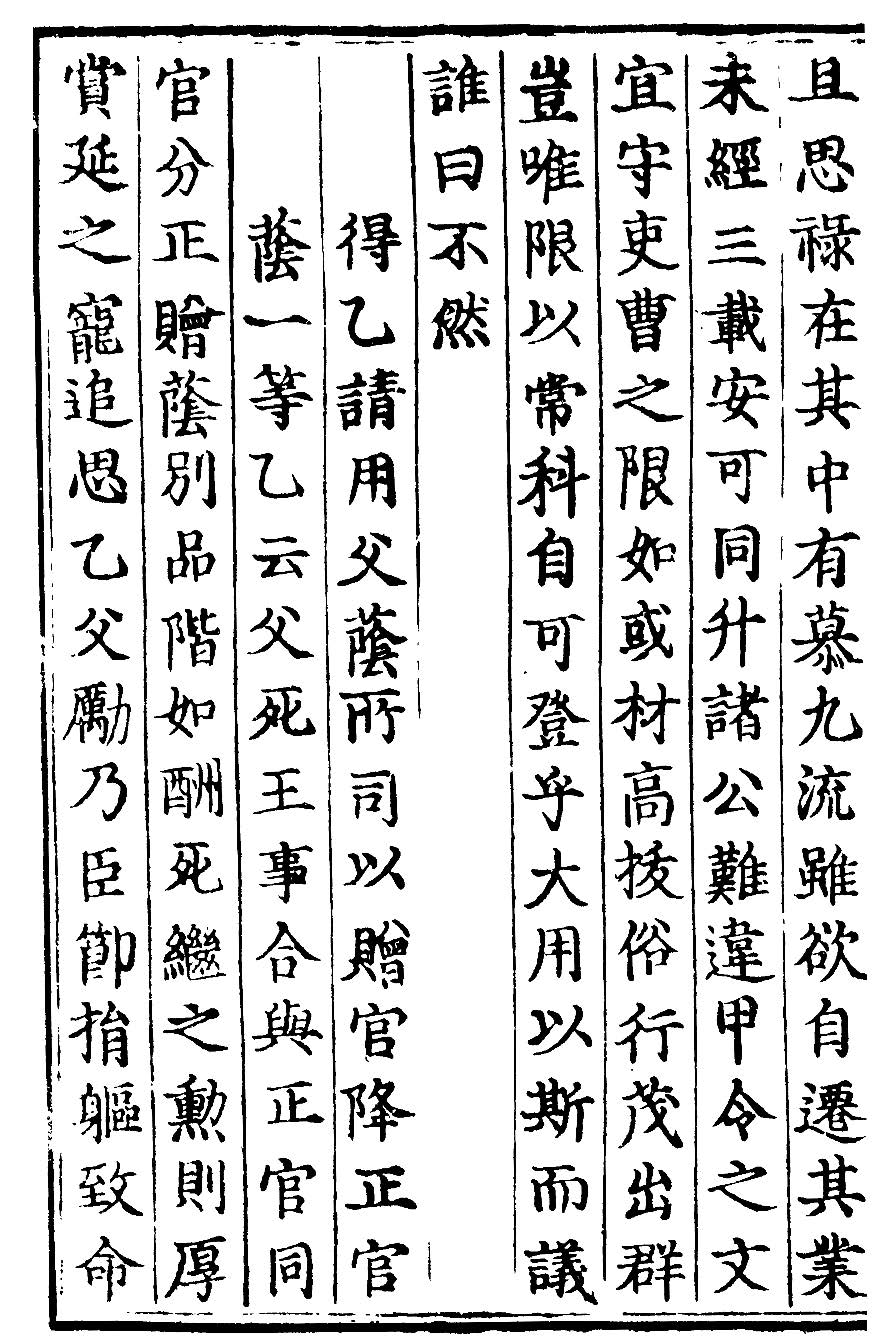 且思祿在其中有慕九流雖欲自遷其業
未經三載安可同升諸公難違甲令之文
宜守吏曹之限如或材高拔俗行茂出群
豈唯限以常科自可登乎大用以斯而議
誰曰不然
得乙請用父蔭所司以贈官降正官
蔭一等乙云父死王事合與正官同
官分正贈蔭別品階如酬死繼之勲則厚
賞延之寵追思乙父勵乃臣節捐軀致命